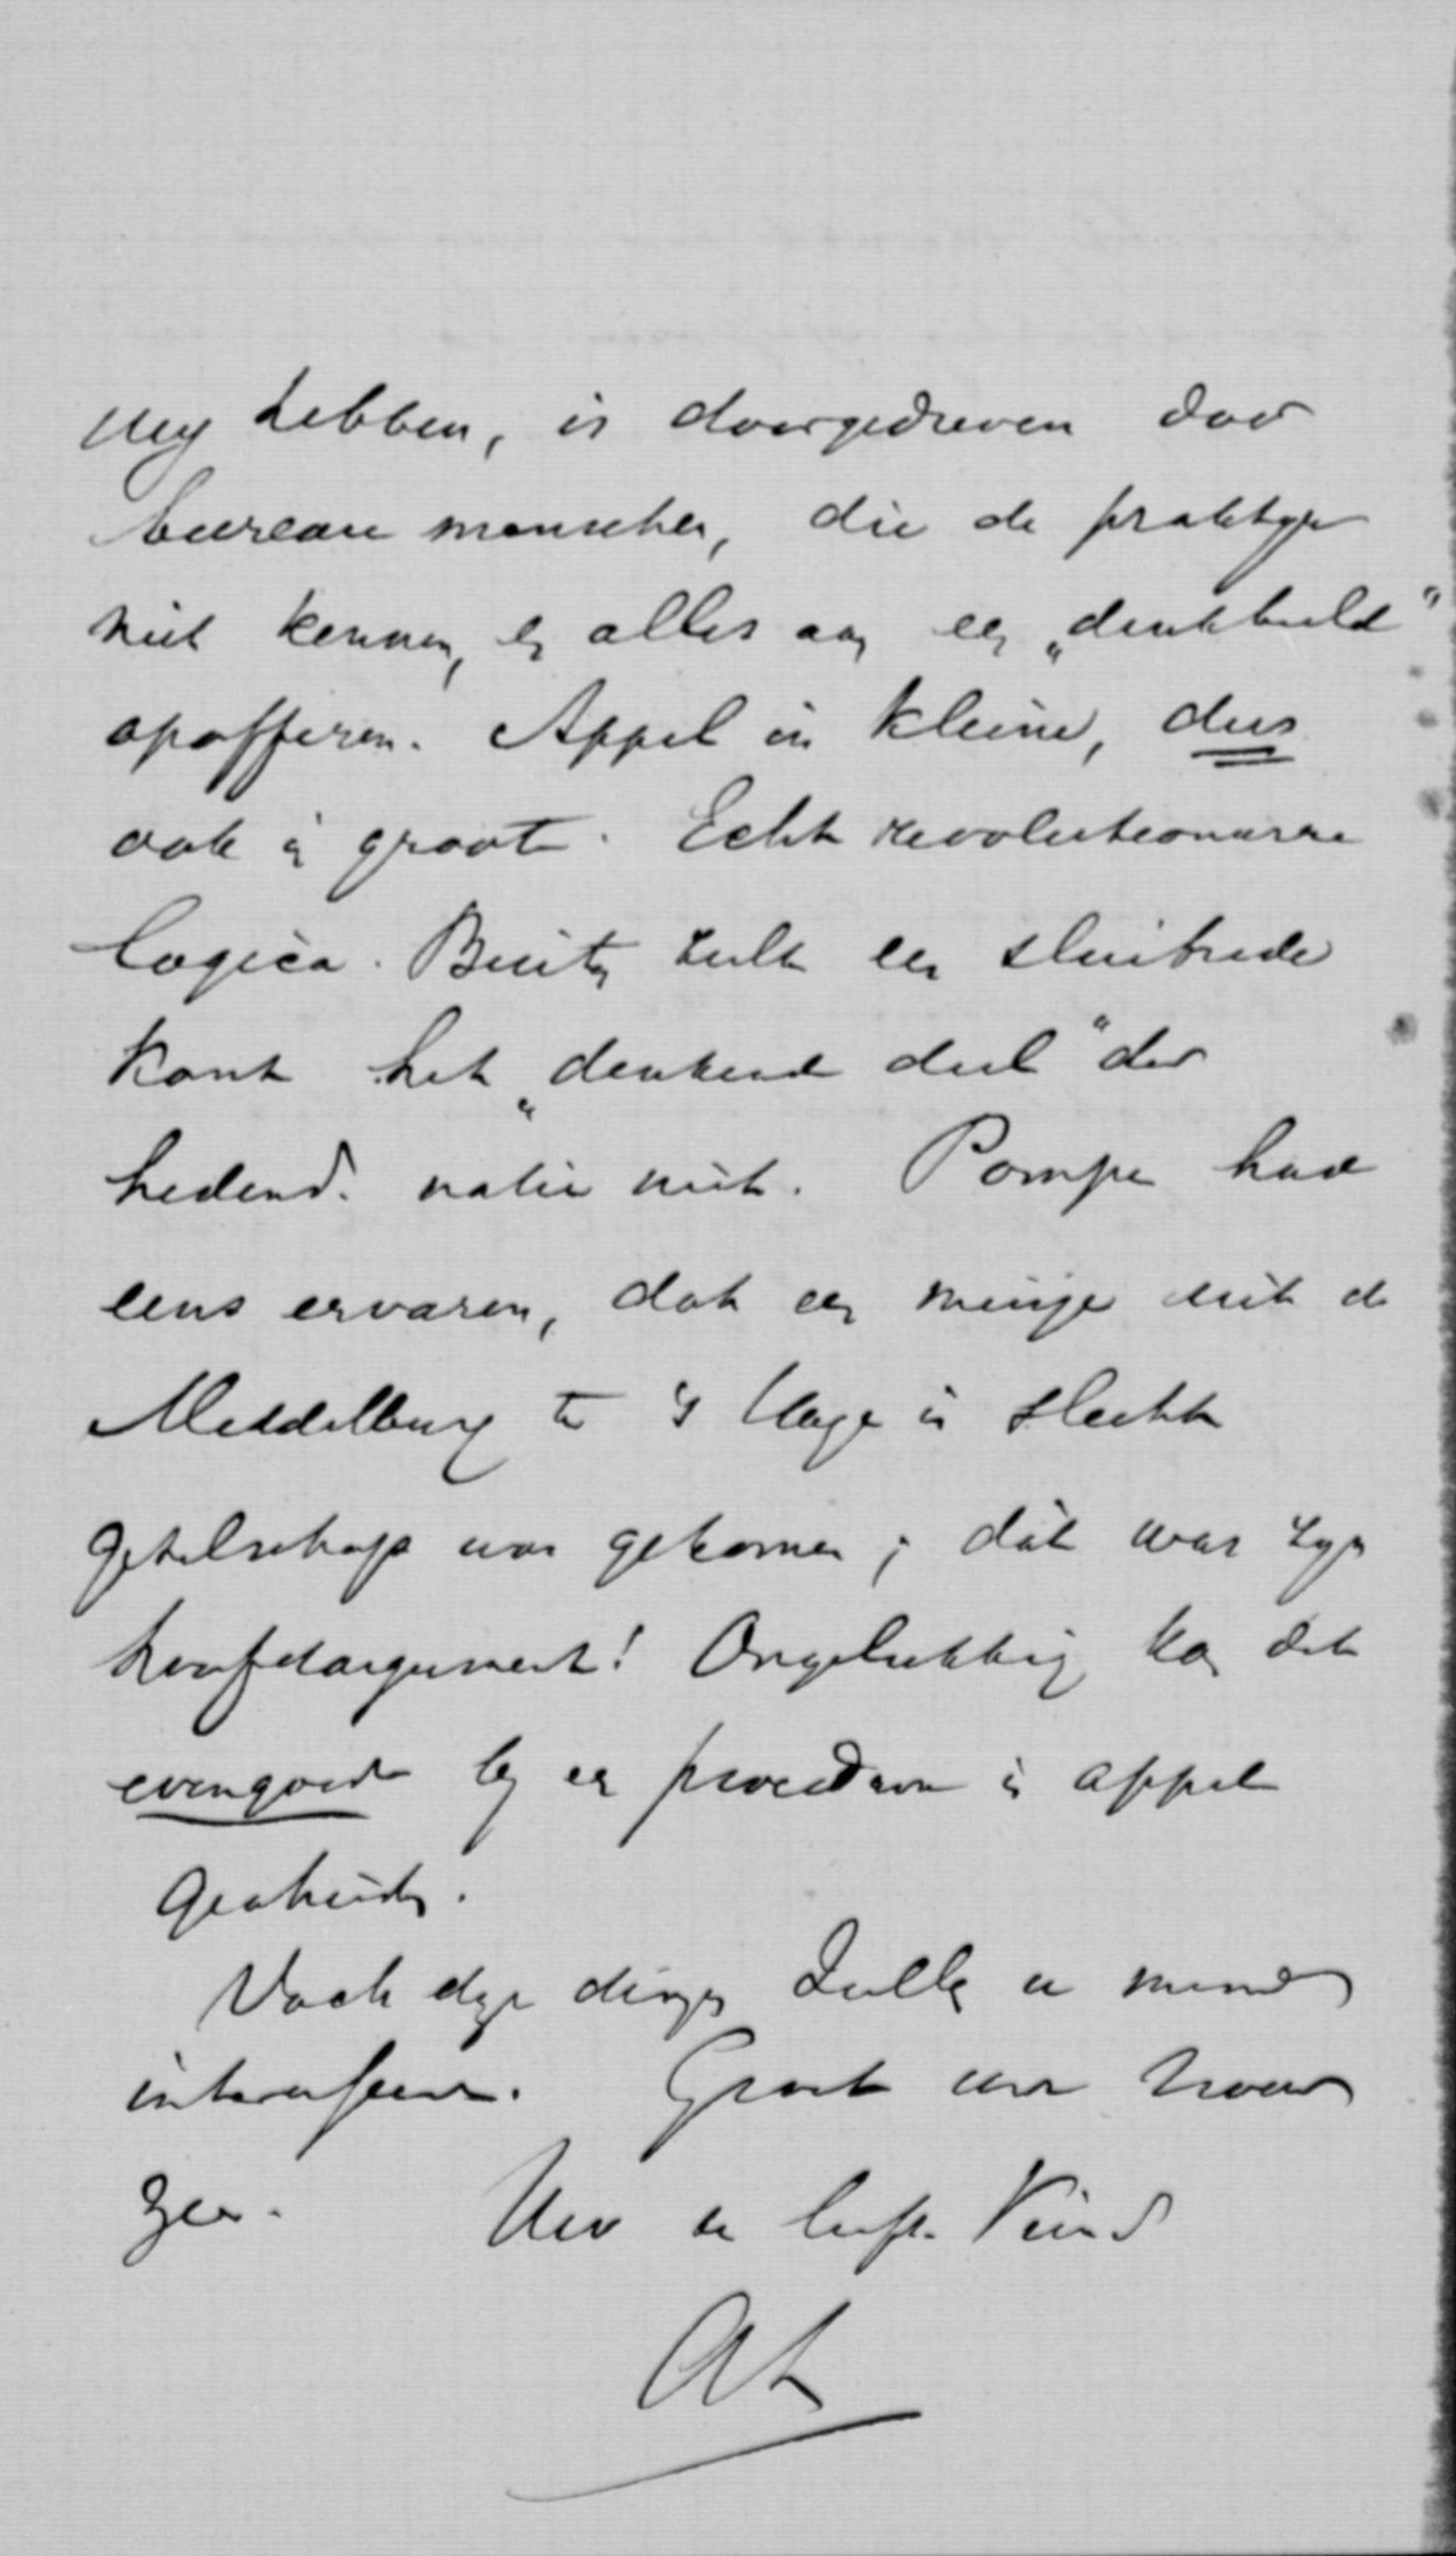 wij hebben, is doorgedreven door
bureau menschen, die de praktijk
niet kennen, en alles aan een „denkbeeld"
opofferen. Appel in kleine, dus
ook in groote. Echt revolutionaire
logica. Buiten zulk een sluitrede
komt het „denkend deel" der
hedend. natie niet. Pompe had
eens ervaren, dat een meisje uit
Middelburg te 's Hage in slecht
gezelschap was gekomen; dát was zijn
hoofdargument! Ongelukkig kan dit
evengoed bij een procedure in appel
geschieden.
Doch deze dingen zullen u minder
interesseren. Groet uw
Uw de liefh. Vriend